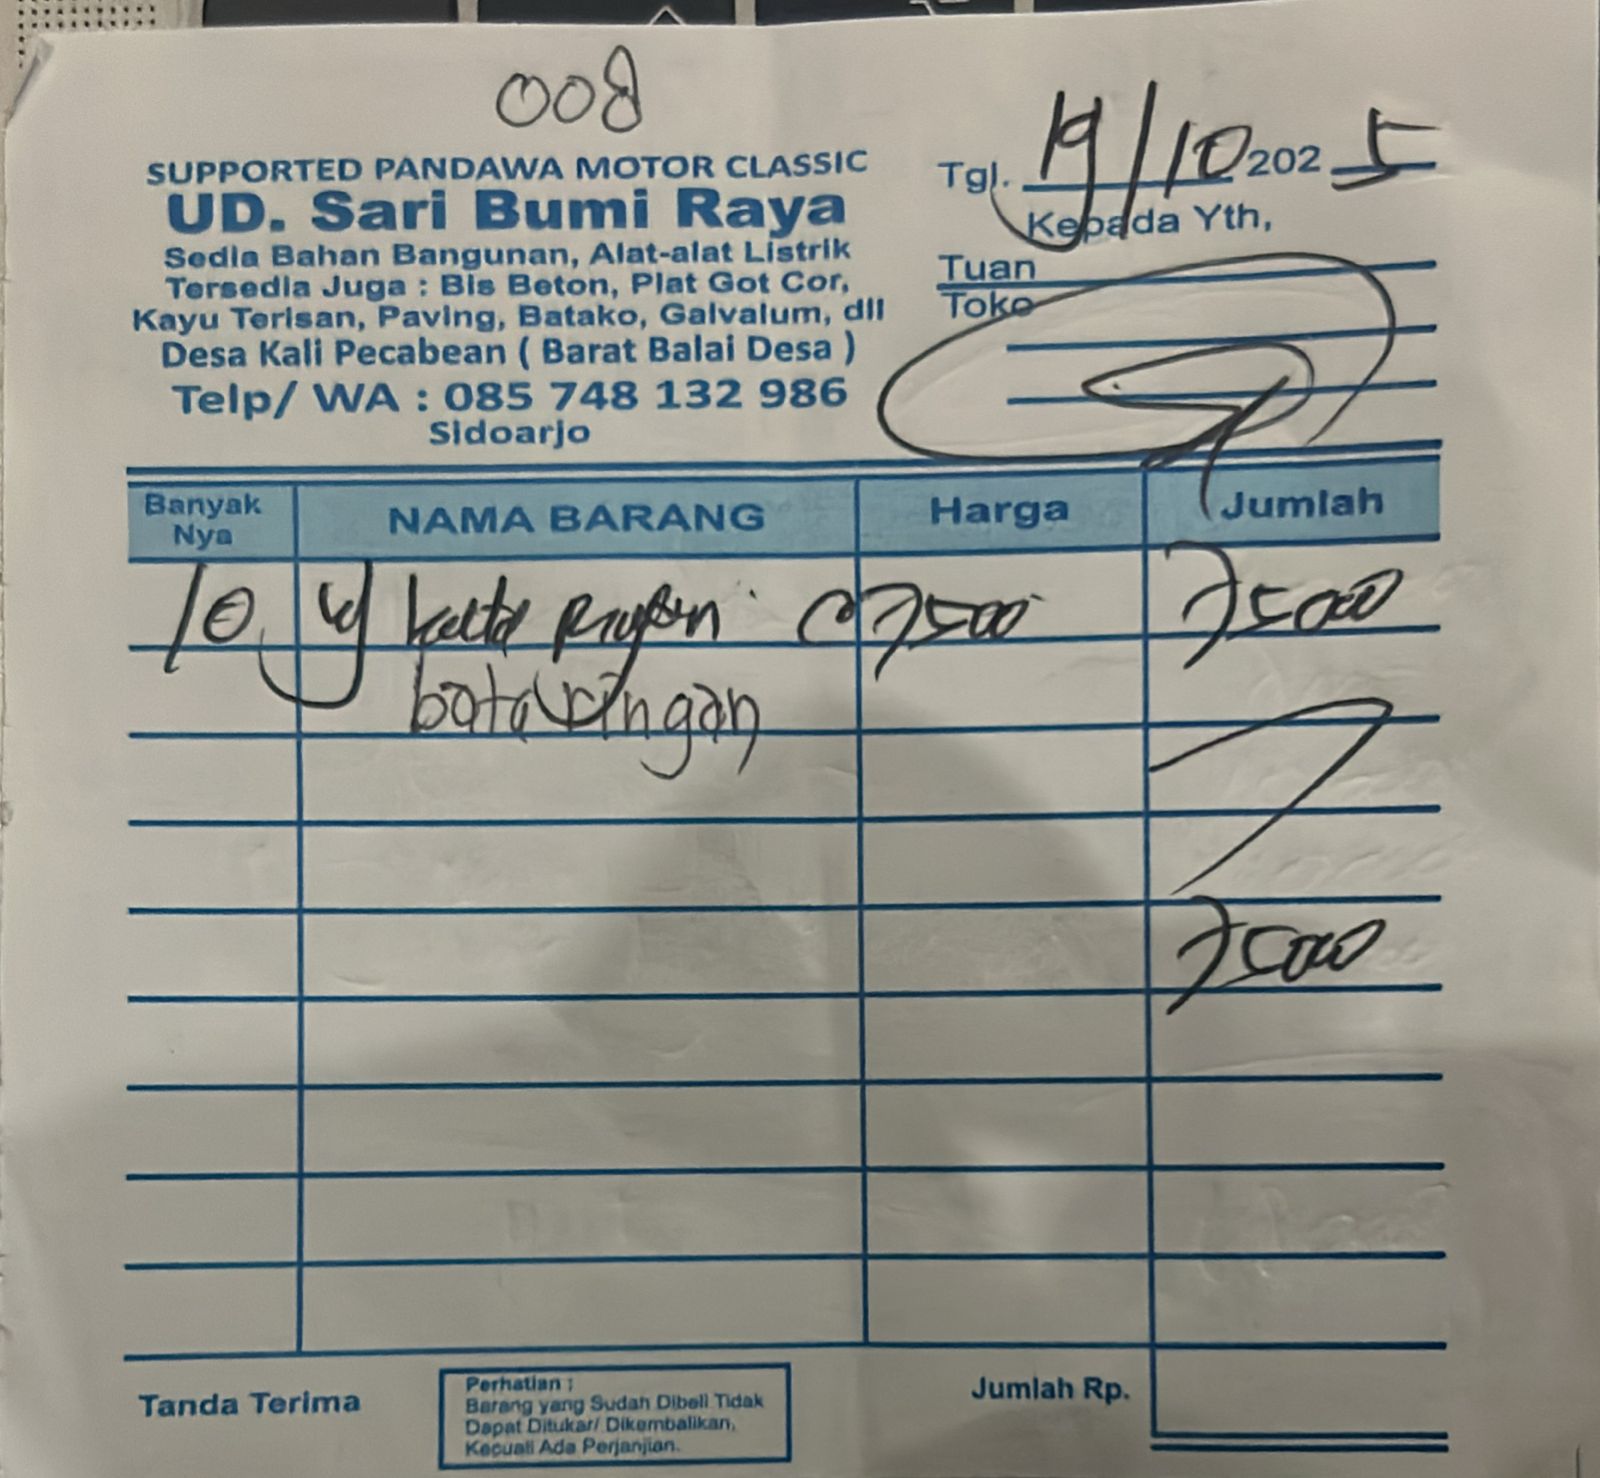 008
SUPPORTED PANDAWA MOTOR CLASSIC
UD. Sari Bumi Raya
Sedia Bahan Bangunan, Alat-alat Listrik
Tersedia Juga : Bis Beton, Plat Got Cor,
Kayu Terisan, Paving, Batako, Galvalum, dll
Desa Kali Pecabean ( Barat Balai Desa )
Telp/ WA : 085 748 132 986
Sidoarjo
Tgl. 19/10 2025
Kepada Yth,
Tuan
Toko
Banyak Nya NAMA BARANG Harga Jumlah
10 7500 75000
bata ringan
75000
Tanda Terima
Perhatian :
Barang yang Sudah Dibeli Tidak
Dapat Ditukar/ Dikembalikan,
Kecuali Ada Perjanjian.
Jumlah Rp.